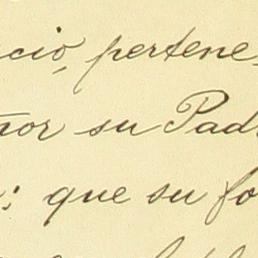 cio, pertene
ñor su Pad
: que su fo